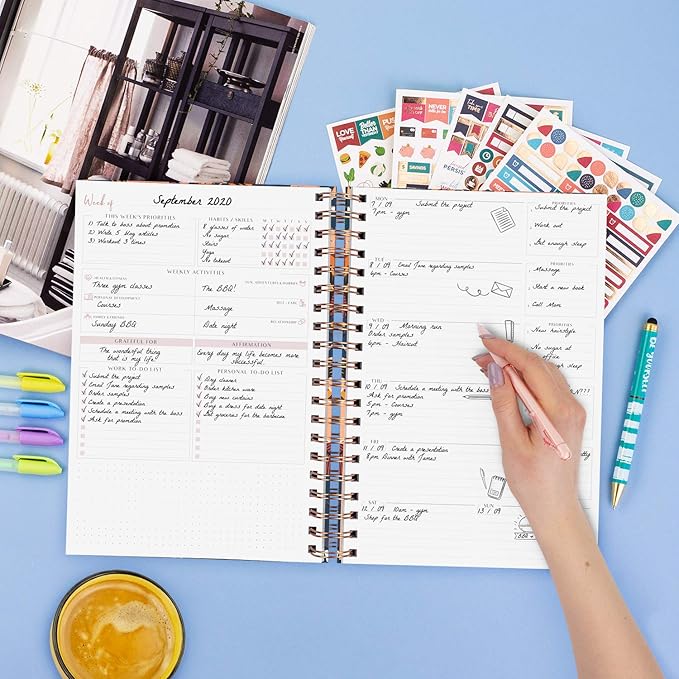 Week of
September 2020
THIS WEEK'S PRIORITIES
1) Talk to boss about promotion
2) Walk 5 blog articles
3) Workout 3 times
HABITS / SKILLS
M T W T F S S
8 glasses of water
No sugar
Stairs
Yoga
No takeout
WEEKLY ACTIVITIES
HEALTH & FITNESS
Three gym classes
The BBQ!
FUN, ADVENTURE & JOURNEY
PERSONAL DEVELOPMENT
Courses
Massage
SELF - CARE
FAMILY & FRIENDS
Sunday BBQ
Date night
RELATIONSHIP
GRATEFUL FOR
The wonderful thing
that is my life!
AFFIRMATION
Every day my life becomes more
successful.
WORK TO-DO LIST
Submit the project
Email Jane regarding samples
Order samples
Create a presentation
Schedule a meeting with the boss
Ask for promotion
PERSONAL TO-DO LIST
Dry cleaner
Order kitchen ware
Buy new curtains
Buy a dress for date night
Get groceries for the barbecue
MON
7 / 09 Submit the project
7pm - gym
PRIORITIES
Submit the project
Work out
Get enough sleep
TUE
8 / 09 Email Jane regarding samples
6pm - Courses
PRIORITIES
Massage
Start a new book
Call Mom
WED
9 / 09 Morning run
Order samples
6pm - Haircut
PRIORITIES
New hairstyle
No sugar at
office
THU
10 / 09 Schedule a meeting with the boss
Ask for promotion
5pm - Courses
7pm - gym
FRI
11 / 09 Create a presentation
8pm Dinner with James
SAT
12 / 09 10am - gym
Shop for the BBQ
SUN
13 / 09
BBQ
LOVE
Yourself
Better
THAN
NEVER
TIME
PERSIST
SAVINGS
BE YOURSELF